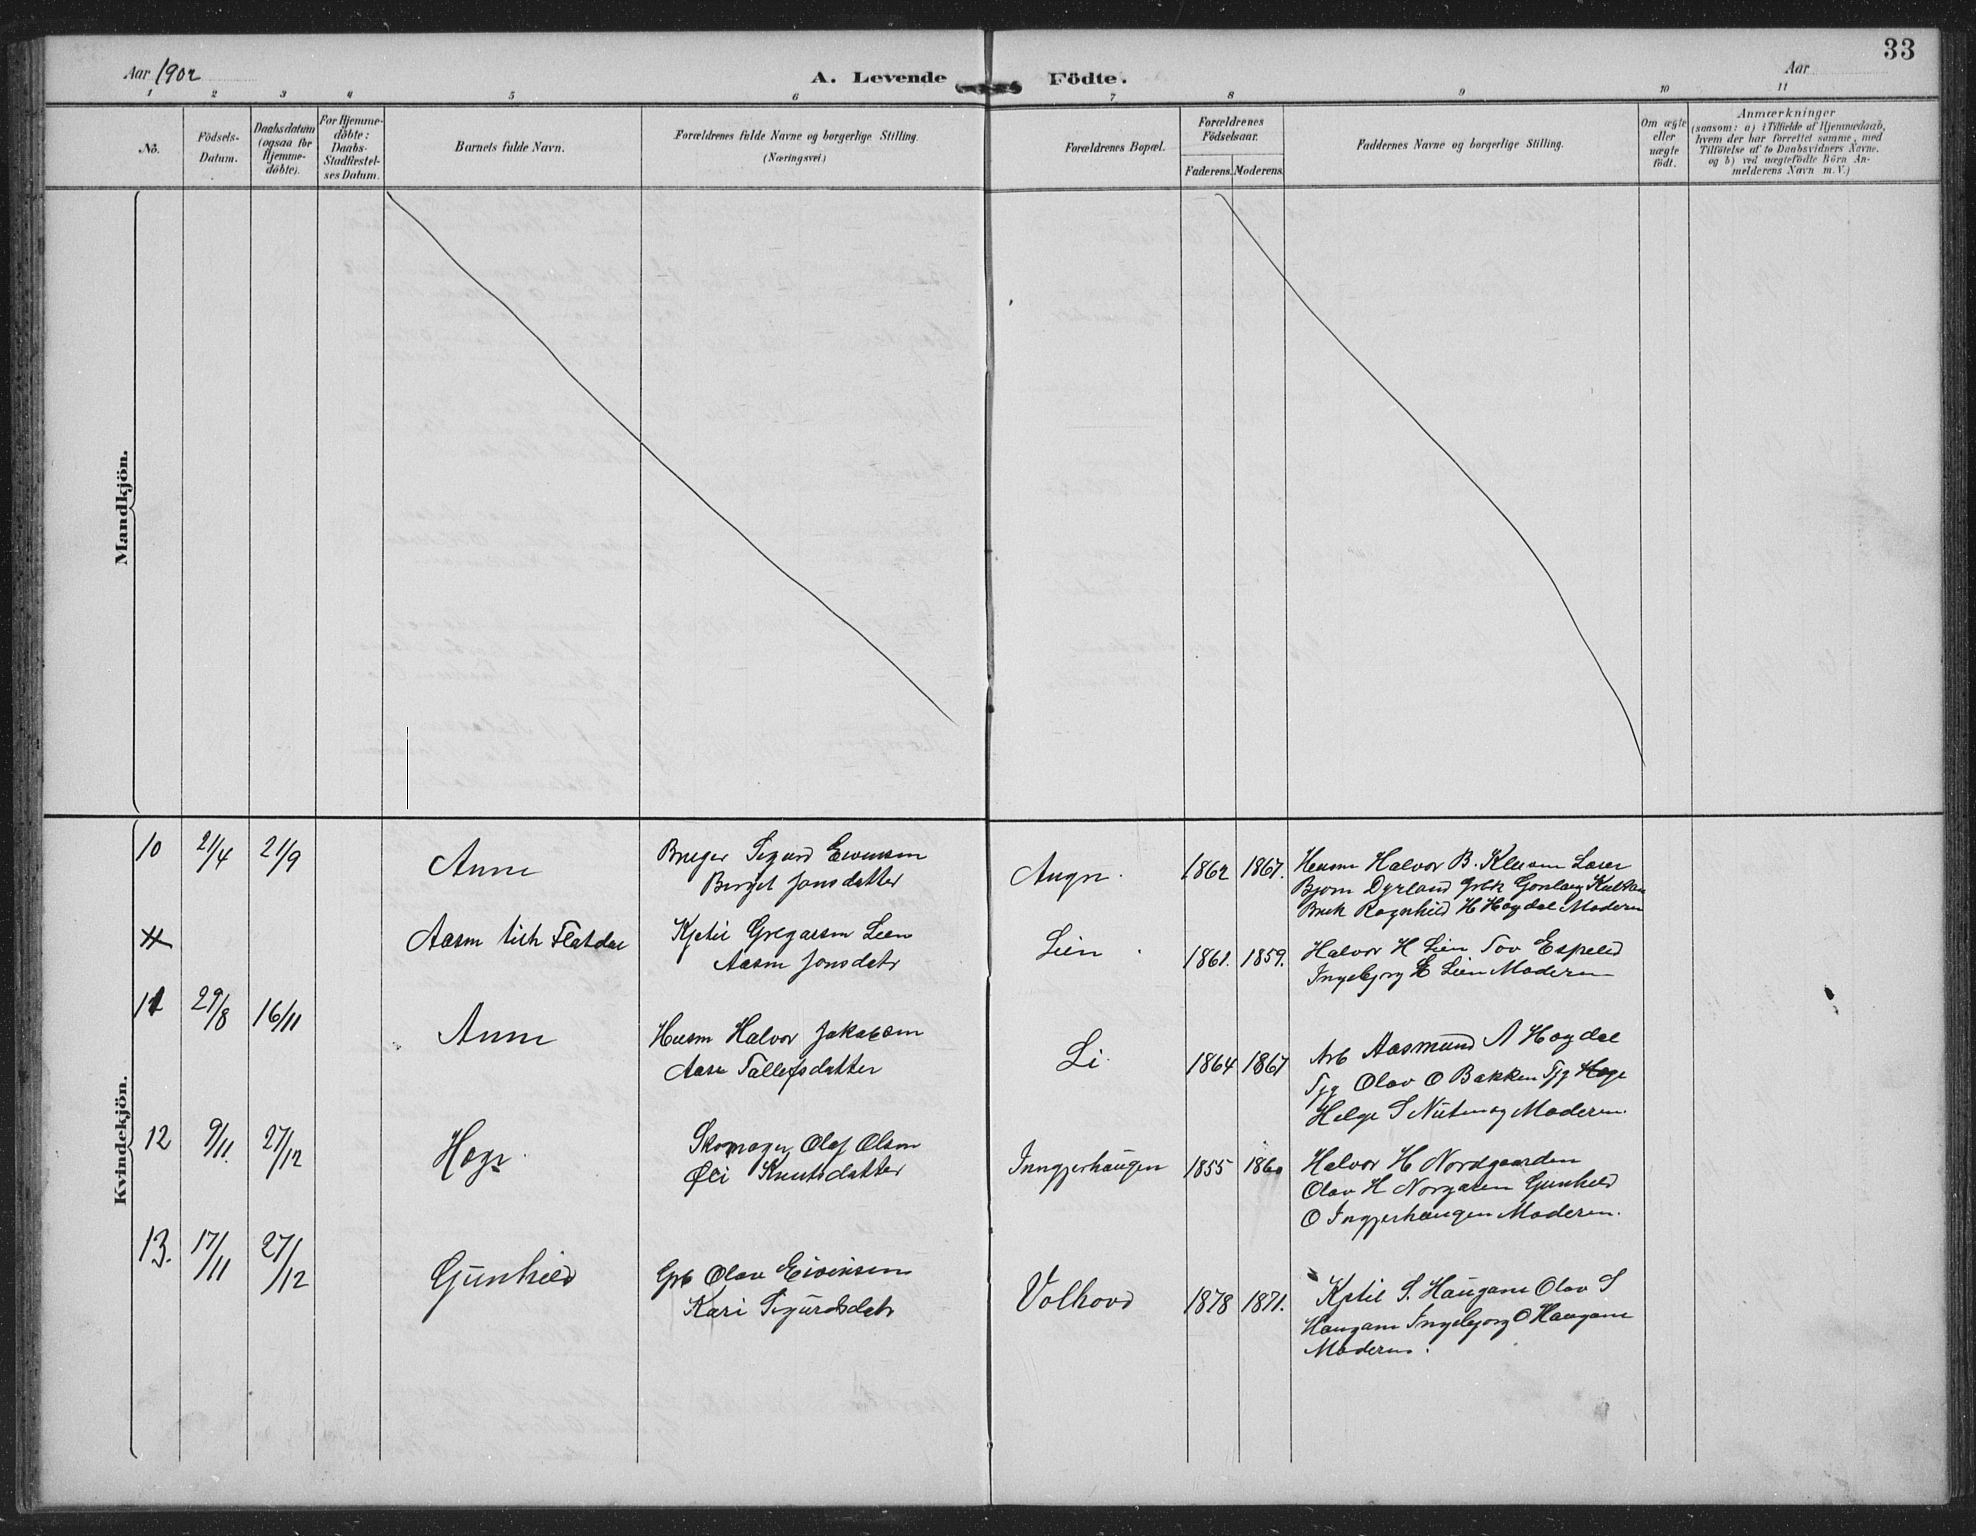 33
Aar 1902
A. Levende Födte.
Aar
1 2 3 4 5 6 7 8 9 10 11
No.
Födsels-
Datum.
Daabsdatum
(ogsaa för
Hjemme-
döbte).
For Hjemme-
döbte:
Daabs-
Stadfæstel-
ses Datum.
Barnets fulde Navn.
Forældrenes fulde Navne og borgerlige Stilling.
(Næringsvei)
Forældrenes Bopæl.
Forældrenes
Födselsaar.
Faderens. Moderens.
Faddernes Navne og borgerlige Stilling.
Om ægte
eller
uægte
födt.
Anmærkninger
(saasom: a) i Tilfælde af Hjemmedaab,
hvem der har forrettet samme, med
Tilföielse af to Daabsvidners Navne.
og b) ved uægtefödte Börn An-
melderens Navn m. V.)
Mandkjön.
Kvindekjön.
10 21/4 21/9 Anne
Bruger Sigurd Evensen
Birgit Jonsdatter
Augn. 1862 1867.
Husm Halvor B. Klusem
Bjorn Dyrland Gonlaug
Bruk Ragnhild H Hogdal Moderen
Aasm Flatdal
Kjetil Gregarsen Lien
Aasne Jonsdatr
Lien 1861. 1859.
Halvor H Lien Tov Espelid
Ingebjorg E Lien Moderen
11 29/8 16/11 Anne
Husm Halvor Jakobsen
Aase Tallefsdatter
Li. 1864 1867
Arb Aasmund A Hogdal
Tjg Olav O Bakken Tjg Hoge
Helge S Nuten og Moderen.
12 9/11. 27/12 Hoge
Skomager Olaf Olsen
Øli Knutsdatter
Inngjerhaugen 1855 1860
Halvor H Nordgaarden
Olav H Norgaren Gunhild
O Ingjerhaugen Moderen.
13. 17/11 27/12 Gunhild
Grb Olav Eivinsen
Kari Sigurdsdatr
Volhovd 1878 1871.
Kjetil S. Haugane Olav S
Haugane Ingebjorg O Haugane
Moderen.